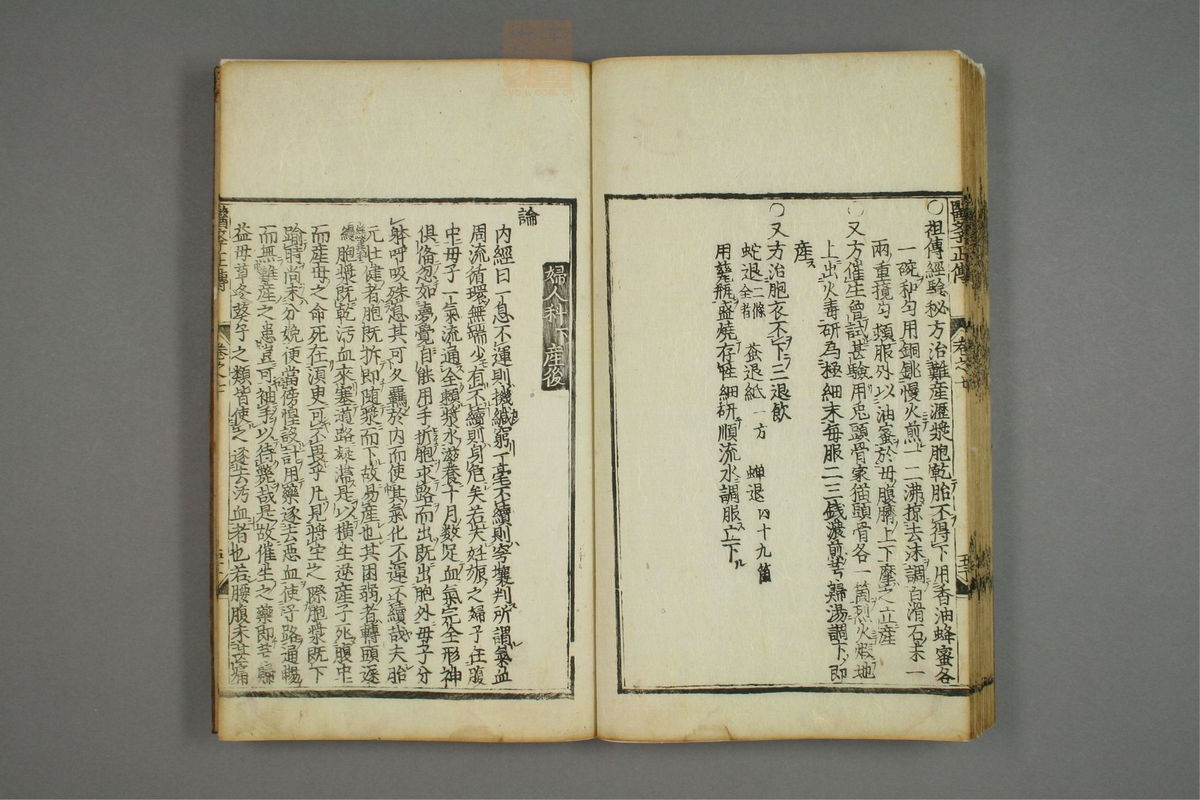 醫學正傳
卷之七
○祖傳經驗秘方治難産瀝漿胞乾胎不得下用香油蜂蜜各
一碗和勻用銅銚慢火煎一二沸掠去沫調白滑石末一
兩重攪勻頓服外以油蜜於母腹臍上下摩之立産
○又方催生曾試甚驗用兎頭骨家猫頭骨各一箇烈火煅地
上出火毒研為極細末每服二三錢濃煎芎歸湯調下即
産
○又方治胞衣不下三退飲
蛇退二條全者 蚕退紙一方 蟬退四十九箇
用甆瓶盛燒存性細研順流水調服立下
婦人科下産後
論
内經曰一息不運則機緘窮一毫不續則穹壤判所謂氣血
周流循環無端少有不續則身危矣若夫妊娠之婦子在腹
中母子一氣流通全賴漿水滋養十月数足血氣完全形神
俱備忽如夢覺自能用手折胞求路而出既出胞外母子分
身呼吸殊息其可久羈於内而使其氣化不運不續哉夫胎
元壯健者胞既拆即隨漿而下故易産也其困弱者轉頭遲
慢胞漿既乾汚血來塞道路凝滯是以横生逆産子死腹中
而産母之命死在須臾可不畏乎凡見將生之際胞漿既下
踰時尚未分娩便當傍惶設計用藥逐去悪血使子路通暢
而無難産之患豈可袖手以待斃哉是故催生之藥即芎歸
益母草冬葵子之類皆使之逐去汚血者也若腰腹未甚痛
醫學正傳
卷之七